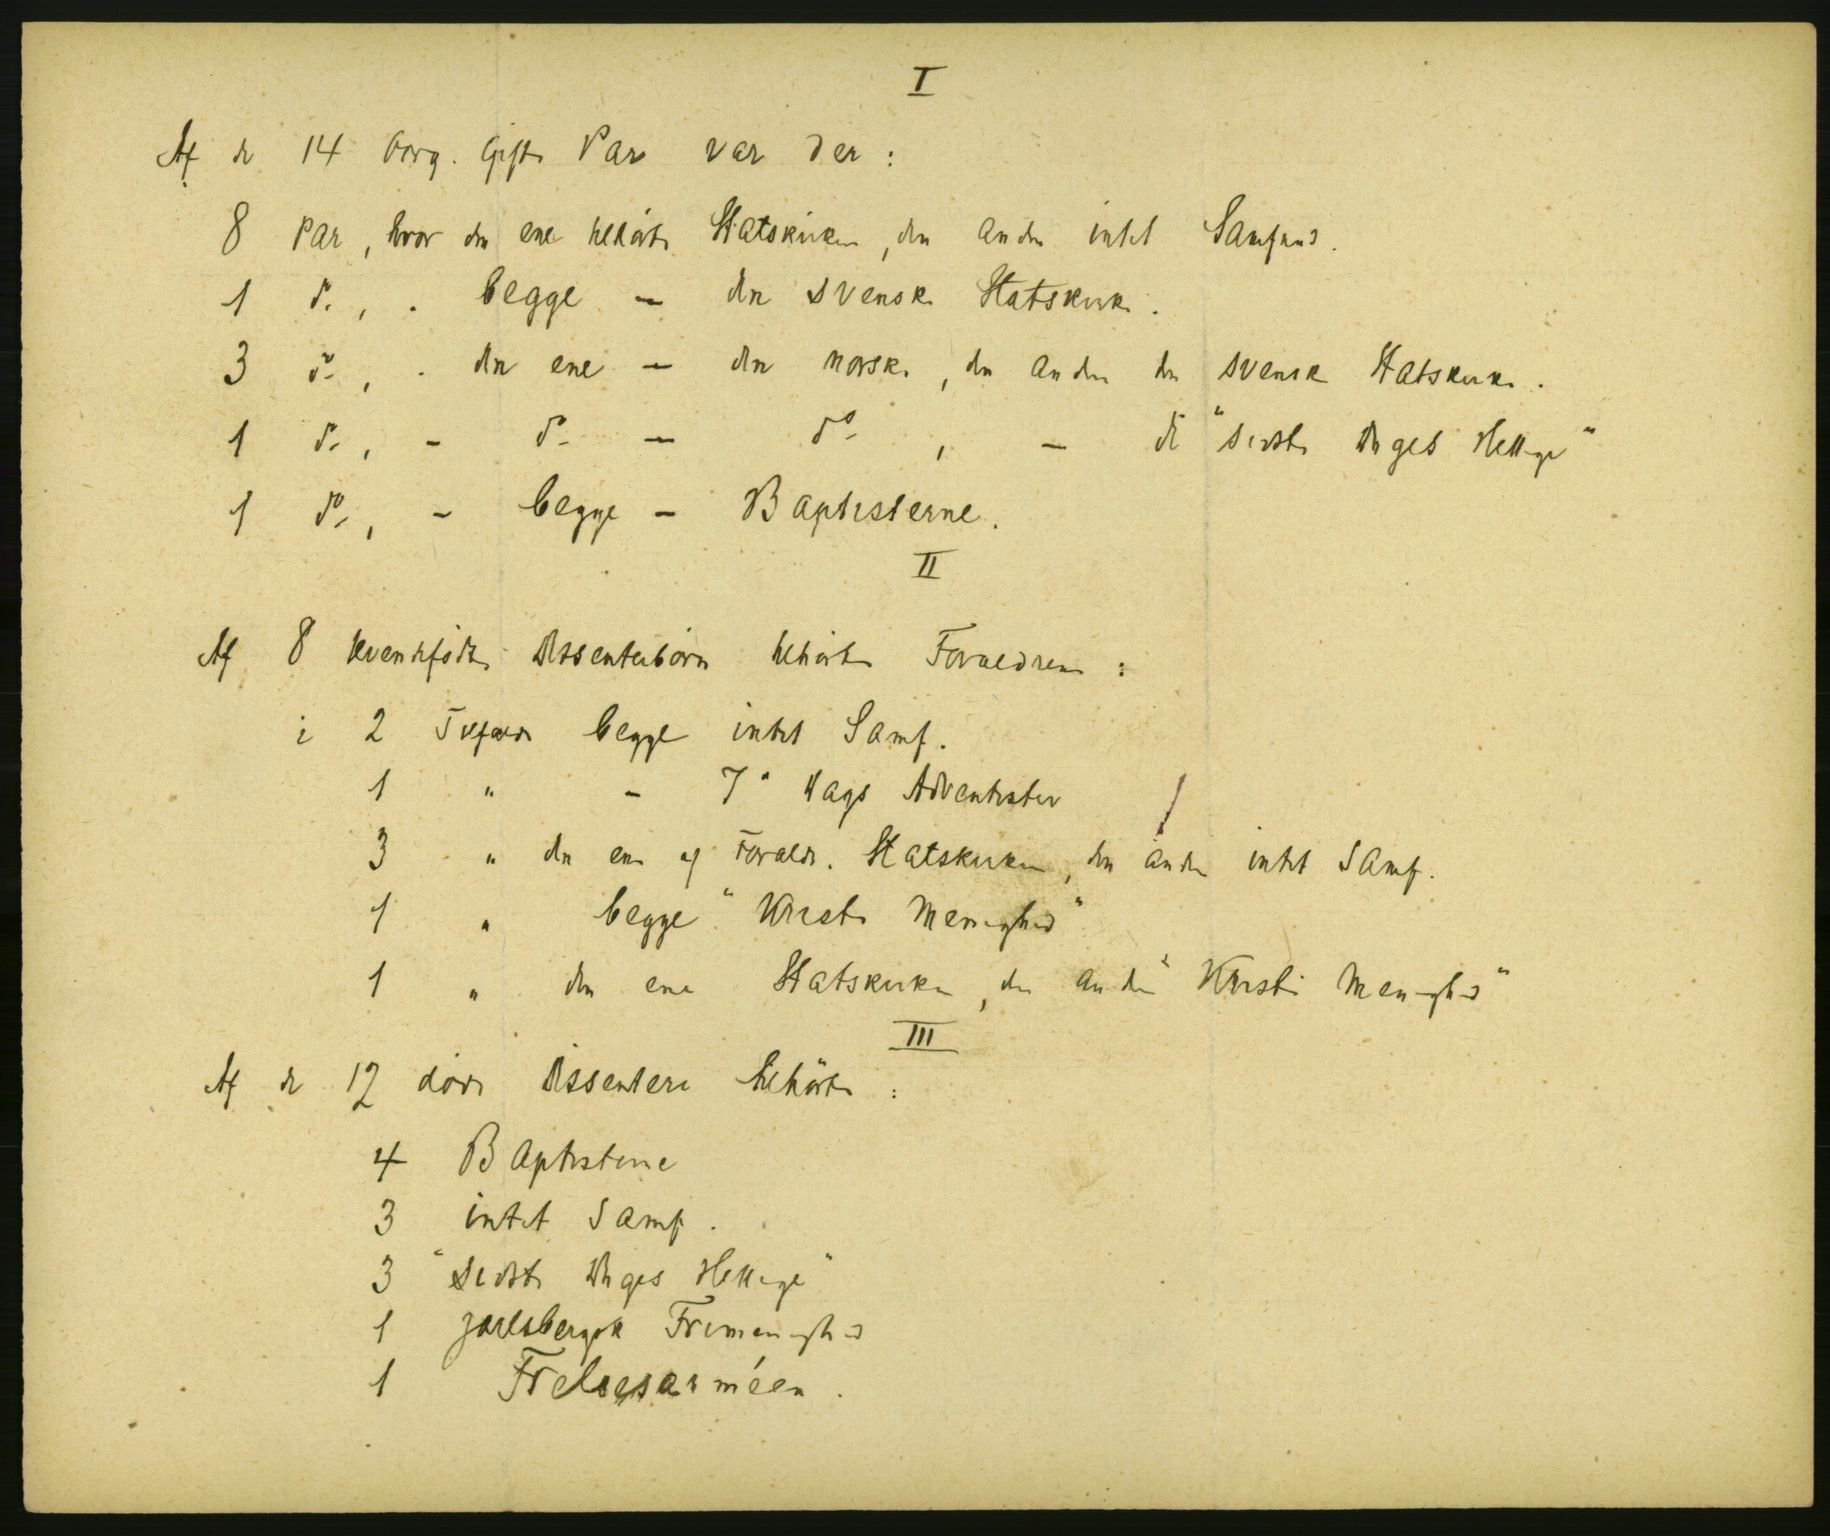 I
Af de 14 borg. Gifte Par var der:
8 Par, hvor den ene tilhørte Statskirken, den anden intet Samfund.
1 do, - begge - den svenske Statskirke.
3 do, - den ene - den norske, den anden den svenske Statskirke.
1 do, - do - do, - de "Sidste Dages Hellige"
1 do, - begge - Baptisterne.
II
Af 8 Dissenterbørn tilhørte Forældrene:
i 2 Tilfælde begge intet Samf.
1 " - 7' Dags Adventister
3 " den ene af Foræld. Statskirken, den anden intet Samf.
1 " begge "Kristi Menighed"
1 " den ene Statskirken, den anden "Kristi Menighed"
III
Af de 12 døde Dissentere tilhørte:
4 Baptisterne
3 intet Samf.
3 "Sidste Dages Hellige"
1 Jarlsbergske Frimenighed
1 Frelsesarméen.